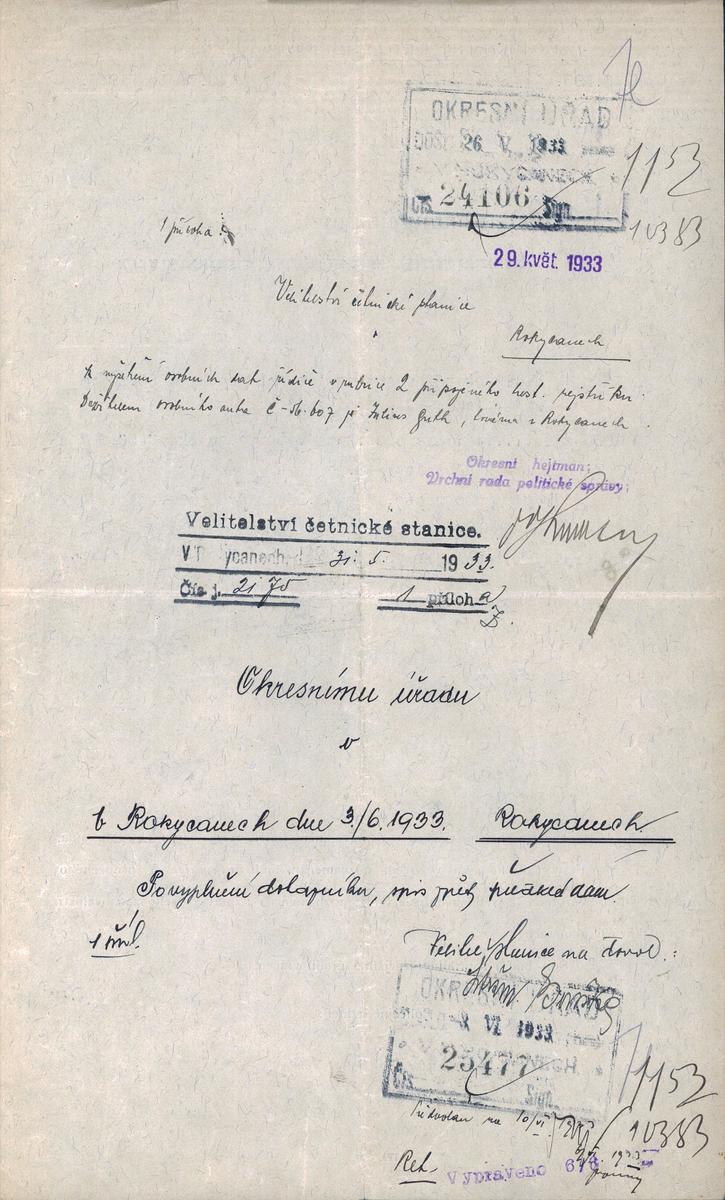 OKRESNÍ ÚŘAD
DOŠLO 26 V 1933
V ROKYCANECH
Čís. 24106 Sign.
1152
10383
29. květ. 1933
1 příloha
Velitelství četnické stanice
Rokycanech
K vyšetření osobních dat řidiče v rubrice 2 připojeného trest. rejstříku.
Držitelem osobního auta Č-56.607 je Julius Guth, v Rokycanech.
Okresní hejtman:
Vrchní rada politické správy:
Velitelství četnické stanice.
V Rokycanech, d 31. 5. 1933.
Čís j. 2170
1 příloha
Okresnímu úřadu
v
V Rokycanech dne 3/6. 1933. Rokycanech.
Po vyplnění dotazníku, spis zpět předkládám.
1 příl.
Velitel stanice na dovol.:
OKRESNÍ ÚŘAD
-8 VI 1933
V ROKYCANECH
25477
Čís. Sign.
1152
10383
na 10/VI
Ret.
Vypraveno